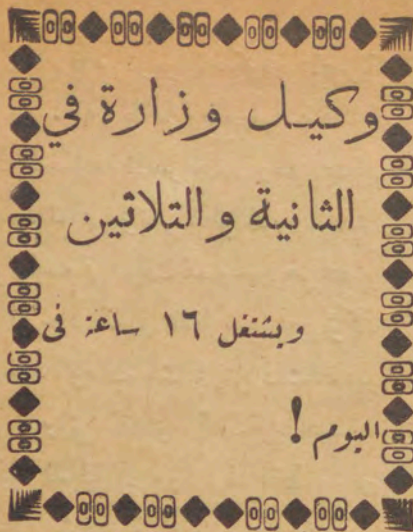 وكيـل وزارة في
الثانية والتلاتين
ويشتغل ١٦ ساعة فى
اليوم !